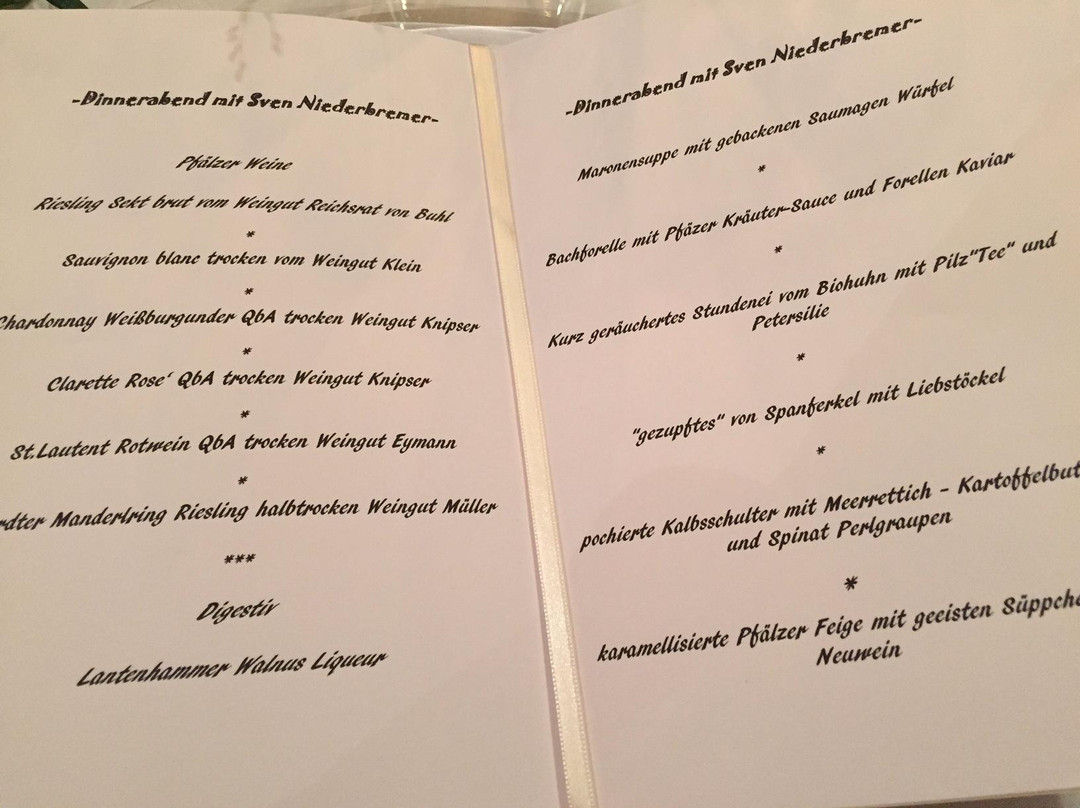 -Dinnerabend mit Sven Niederbremer-
Pfälzer Weine
Riesling Sekt brut vom Weingut Reichsrat von Buhl
*
Sauvignon blanc trocken vom Weingut Klein
*
Chardonnay Weißburgunder QbA trocken Weingut Knipser
*
Clarette Rose' QbA trocken Weingut Knipser
*
St.Lautent Rotwein QbA trocken Weingut Eymann
*
Manderlring Riesling halbtrocken Weingut Müller
***
Digestiv
Lantenhammer Walnus Liqueur
-Dinnerabend mit Sven Niederbremer-
Maronensuppe mit gebackenen Saumagen Würfel
*
Bachforelle mit Pfäzer Kräuter-Sauce und Forellen Kaviar
*
Kurz geräuchertes Stundenei vom Biohuhn mit Pilz"Tee" und
Petersilie
*
"gezupftes" von Spanferkel mit Liebstöckel
*
pochierte Kalbsschulter mit Meerrettich - Kartoffelbut
und Spinat Perlgraupen
*
karamellisierte Pfälzer Feige mit geeisten Süppche
Neuwein